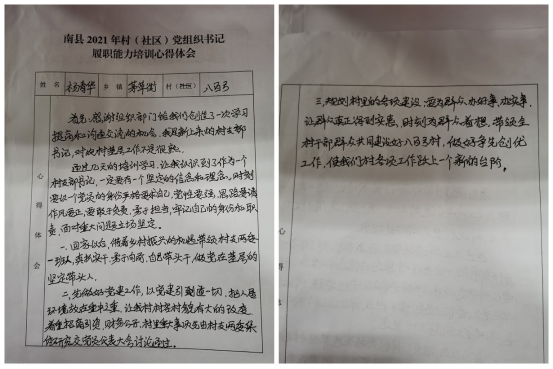 南县2021年村（社区）党组织书记
履职能力培训心得体会
姓名 杨清华 乡镇 茅草街 村（社区） 八百弓
心得体会
首先，感谢组织部门给我们创造了一次学习
提高和沟通交流的机会，我是新上来的村支部
书记，对农村基层工作不是很熟。
通过几天的培训学习，让我认识到作为一个
村支部书记，一定要有一个坚定的信念和理念。时刻
要以一个党员的身份严格要求自己，党性要强，思路要清
作风要正，要敢于负责，勇于担当，牢记自己的身份和职
责，面对重大问题立场坚定。
一、回去以后，借着乡村振兴的机遇带领村支两委
一班人，真抓实干，勇于向前，自己带头干，做党在基层的
坚定带头人。
二、先做好党建工作，以党建引领一切，把人居
环境放在重中之重，让我村村容村貌有大的改变
着重招商引资，财务公开，村里重大事项先由村支两委集
体研究交党员代表大会讨论通过。
三、规划村里的各项建设，要为群众办好事，办实事，
让群众真正得到实惠，时刻为群众着想，带领全
村干部群众共同建设好八百弓村，做好争先创优
工作，使我们村各项工作跃上一个新的台阶。